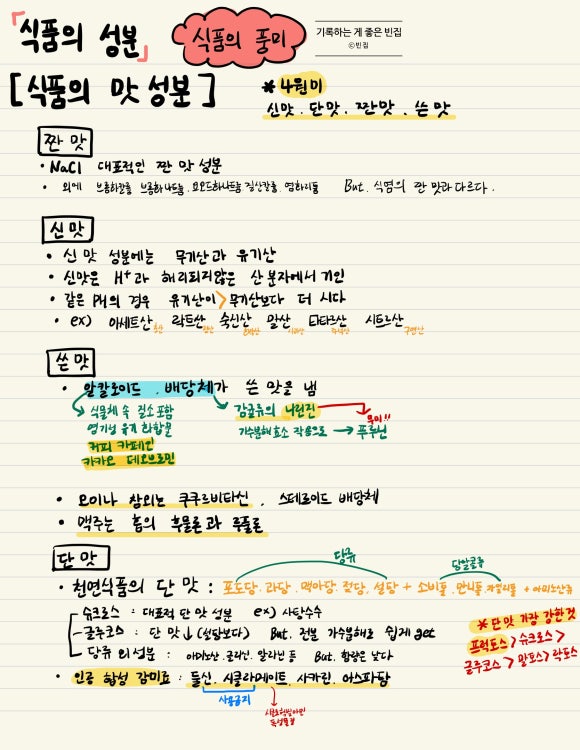 「식품의 성분」
식품의 풍미
기록하는 게 좋은 빈집
©빈집
[식품의 맛 성분]
* 4원미
신맛. 단맛. 짠맛. 쓴맛
짠 맛
• NaCl 대표적인 짠 맛 성분
• 외에 브롬화칼륨 브롬화나트륨. 요오드화나트륨 질산칼륨. 염화리튬 But. 식염의 짠 맛과 다르다.
신맛
• 신 맛 성분에는 무기산과 유기산
• 신맛은 H+과 해리되지않은 산 분자에서 기인
• 같은 PH의 경우 유기산이 > 무기산보다 더 시다
• ex) 아세트산 락트산 숙신산 말산 타타르산 시트르산
초산 젖산 호박산 사과산 주석산 구연산
쓴 맛
• 알칼로이드. 배당체가 쓴 맛을 냄
식물체 속 질소 포함
염기성 유기 화합물
커피 카페인
카카오 테오브로민
감귤류의 나린진
무미"
가수분해 효소 작용으로 → 푸루닌
• 오이나 참외는 쿠쿠르비타신. 스테로이드 배당체
• 맥주는 홉의 후물론과 루풀론
단 맛
당류
당알코올
• 천연식품의 단 맛 : 포도당. 과당. 맥아당. 젖당. 설탕 + 소비톨. 만니톨. 자일리톨 + 아미노산류
슈크로스 : 대표적 단 맛 성분 ex) 사탕수수
글루코스 : 단 맛↓ (설탕보다) But. 전분 가수분해로 쉽게 get
당류 외 성분 : 아미노산. 글리신. 알라닌 등 But. 함량은 낮다
* 단 맛 가장 강한것
프럭토스 > 슈크로스 >
글루코스 > 말토스 > 락토스
• 인공 합성 감미료 : 둘신. 시클라메이트. 사카린. 아스파탐
사용금지
독성물질